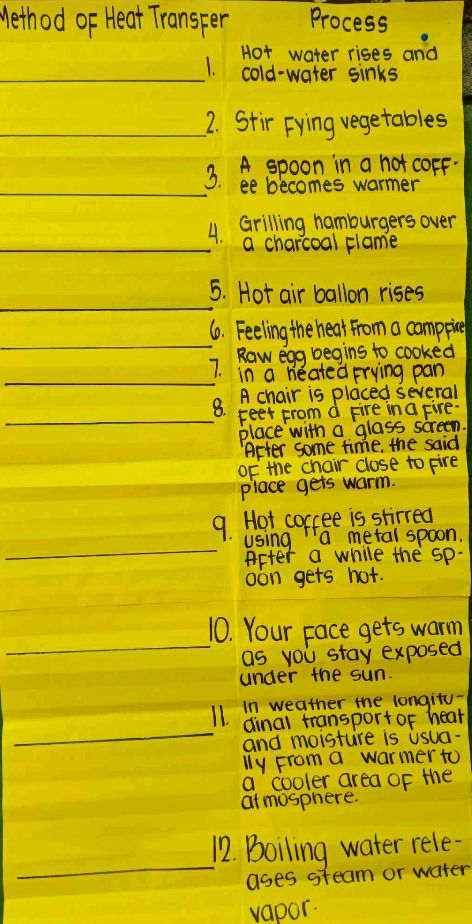 Method of Heat Transfer Process
1. Hot water rises and
cold-water sinks
2. Stir Fying vegetables
3. A spoon in a hot coff-
ee becomes warmer
4. Grilling hamburgers over
a charcoal flame
5. Hot air ballon rises
6. Feeling the heat from a campfire
7. Raw egg begins to cooked
in a heated frying pan
8. A chair is placed several
feet from a fire in a fire-
place with a glass screen.
After some time, the said
of the chair close to fire
place gets warm.
9. Hot coffee is stirred
using a metal spoon.
After a while the sp-
oon gets hot.
10. Your face gets warm
as you stay exposed
under the sun.
11. In weather the longitu-
dinal transport of heat
and moisture is usua-
lly from a warmer to
a cooler area of the
atmosphere.
12. Boiling water rele-
ases steam or water
vapor.